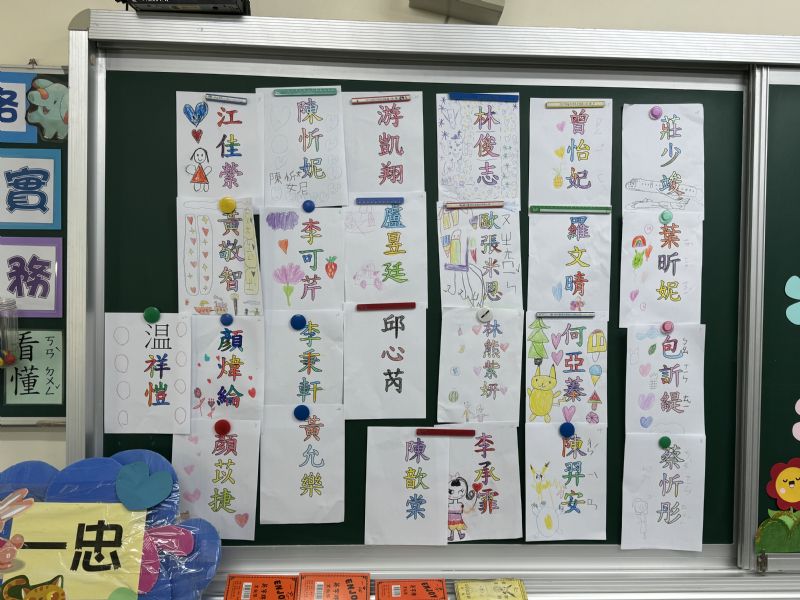 江佳縈
陳忻妮
游凱翔
林俊志
曾怡妃
莊少竣
黃敬智
李可芹
盧昱廷
歐張米恩
羅文晴
葉昕妮
温祥愷
顏煒綸
李秉軒
邱心芮
林熊紫妍
何亞蓁
包訢緹
顏苡捷
黃允樂
陳歆棠
李承霏
陳羿安
蔡忻彤
實
務
看懂
ㄎㄢˋ
ㄉㄨㄥˇ
一忠
ENJOY
ENJOY